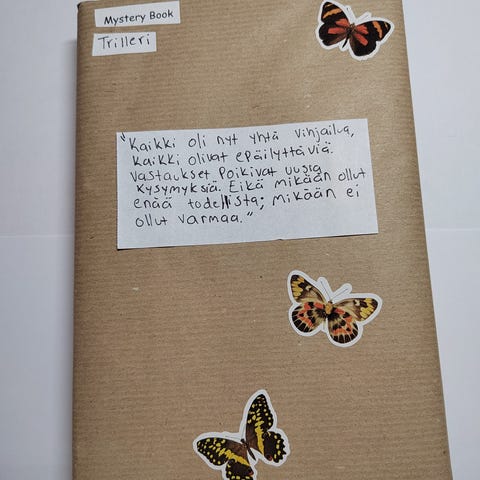 Mystery Book
Trilleri
"Kaikki oli nyt yhtä vihjailua,
kaikki olivat epäilyttäviä.
Vastaukset poikivat uusia
kysymyksiä. Eikä mikään ollut
enää todellista; mikään ei
ollut varmaa."